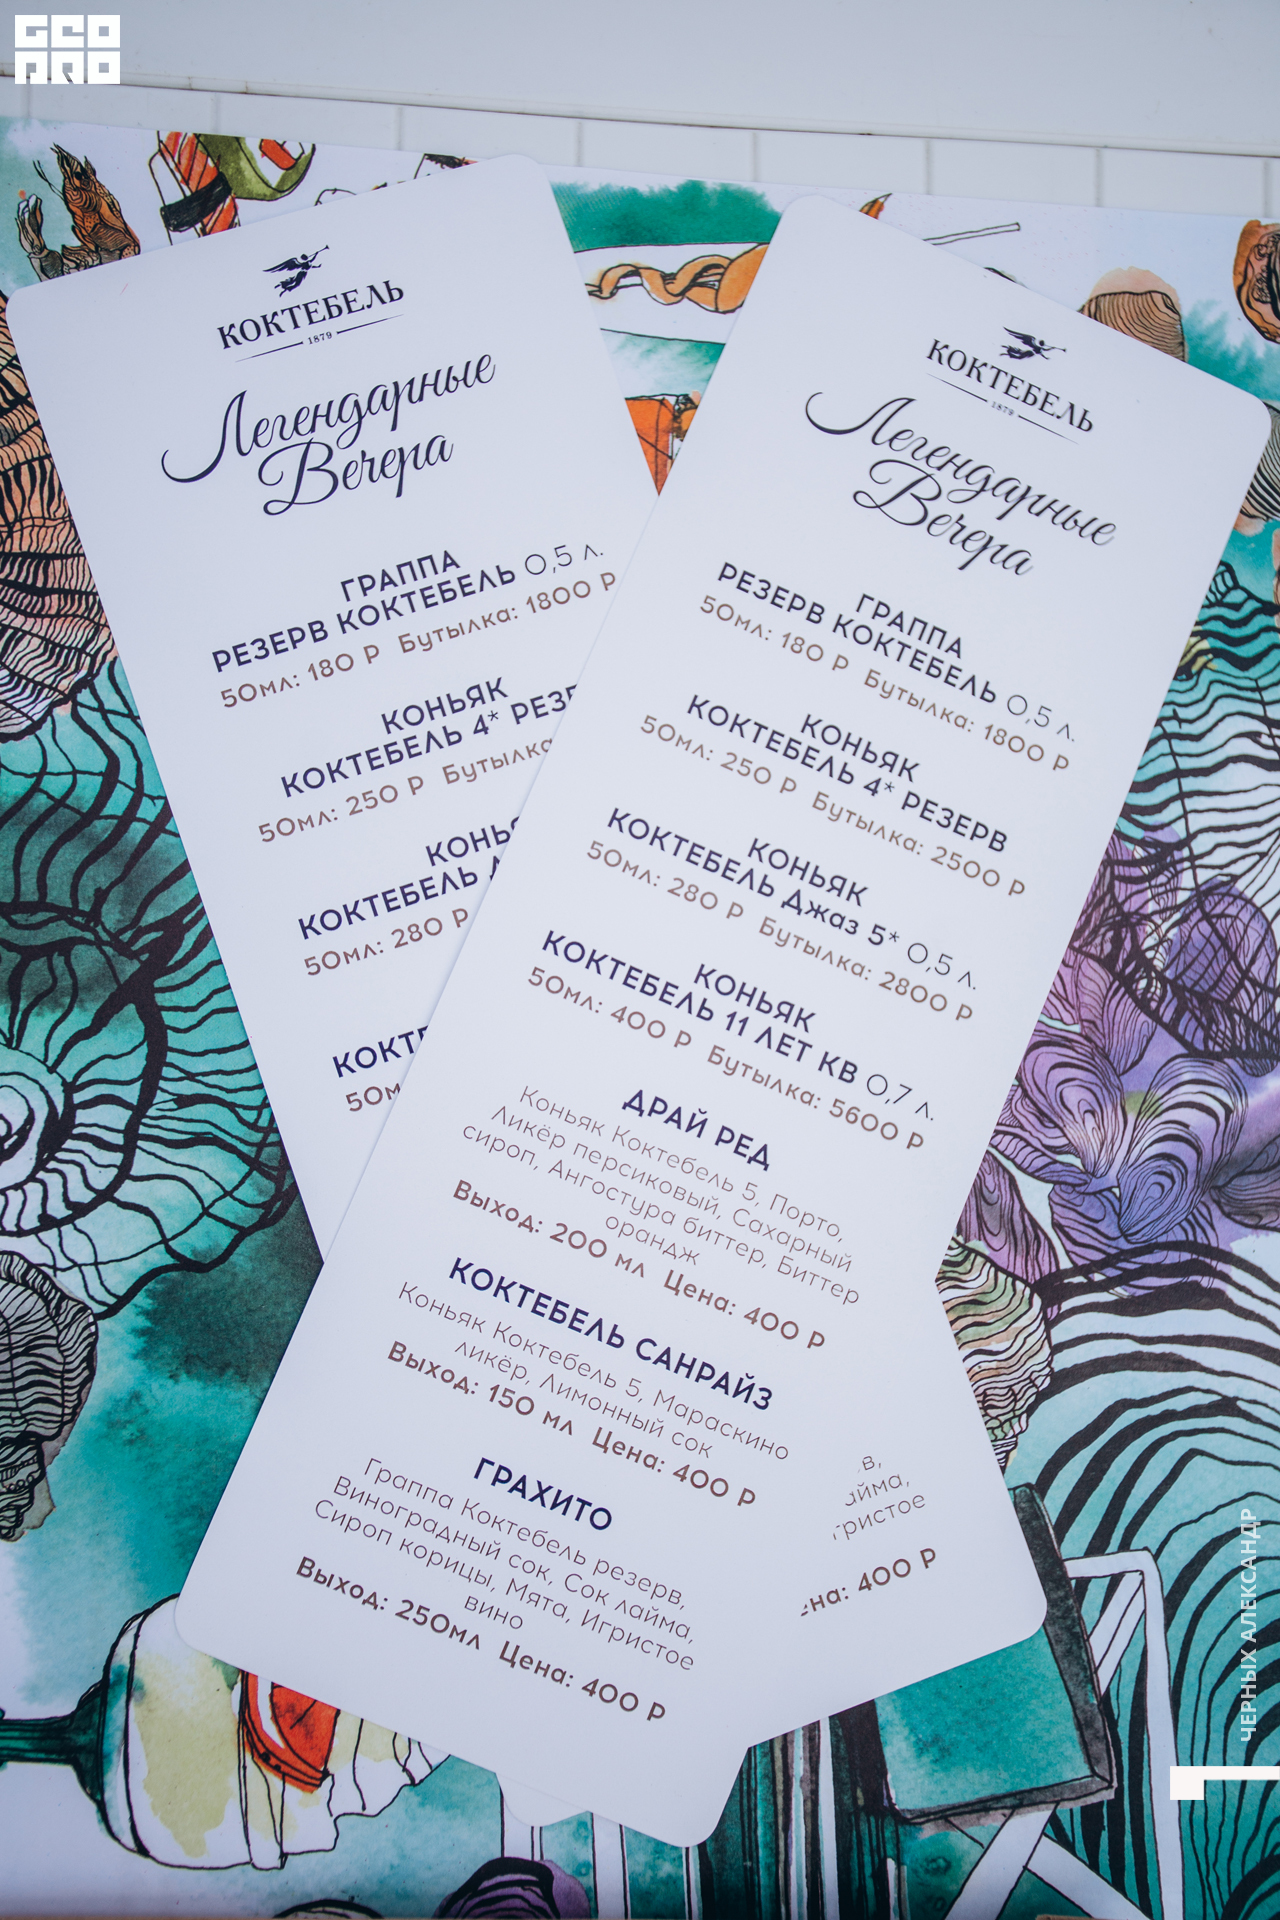 GEO
PRO
КОКТЕБЕЛЬ
1879
Легендарные
Вечера
ГРАППА
РЕЗЕРВ КОКТЕБЕЛЬ 0,5 л.
50мл: 180 Р Бутылка: 1800 Р
КОНЬЯК
КОКТЕБЕЛЬ 4* РЕЗЕ
50мл: 250 Р Бутылка
КОНЬЯ
КОКТЕБЕЛЬ
50мл: 280 Р
КОКТЕ
50м
в,
айма,
гристое
на: 400 Р
КОКТЕБЕЛЬ
1879
Легендарные
Вечера
ГРАППА
РЕЗЕРВ КОКТЕБЕЛЬ 0,5 л.
50мл: 180 Р Бутылка: 1800 Р
КОНЬЯК
КОКТЕБЕЛЬ 4* РЕЗЕРВ
50мл: 250 Р Бутылка: 2500 Р
КОНЬЯК
КОКТЕБЕЛЬ Джаз 5* 0,5 л.
50мл: 280 Р Бутылка: 2800 Р
КОНЬЯК
КОКТЕБЕЛЬ 11 ЛЕТ КВ 0,7 л.
50мл: 400 Р Бутылка: 5600 Р
ДРАЙ РЕД
Коньяк Коктебель 5, Порто,
Ликёр персиковый, Сахарный
сироп, Ангостура биттер, Биттер
орандж
Выход: 200 мл Цена: 400 Р
КОКТЕБЕЛЬ САНРАЙЗ
Коньяк Коктебель 5, Мараскино
ликёр, Лимонный сок
Выход: 150 мл Цена: 400 Р
ГРАХИТО
Граппа Коктебель резерв,
Виноградный сок, Сок лайма,
Сироп корицы, Мята, Игристое
вино
Выход: 250мл Цена: 400 Р
ЧЕРНЫХ АЛЕКСАНДР